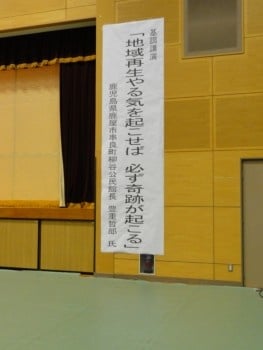 基調講演
「地域再生やる気を起こせば 必ず奇跡が起こる」
鹿児島県鹿屋市串良町柳谷公民館長 豊重哲郎 氏